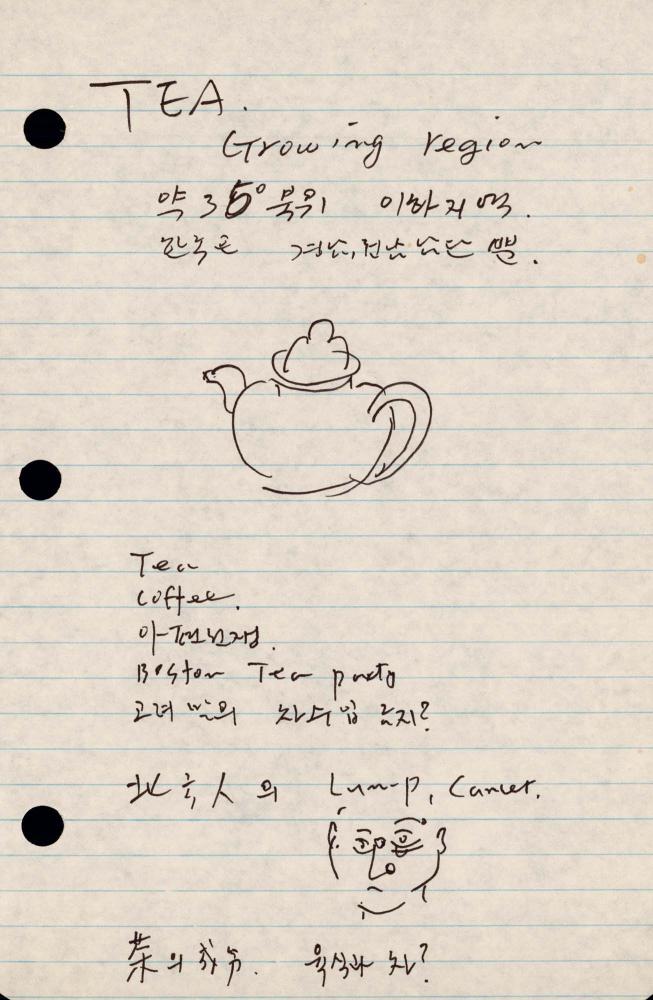 TEA.
Growing region
약 35° 북위 이하 지역.
한국은 경남, 전남 남단 뿐.
Tea
Coffee.
아편전쟁.
Boston Tea party
고려 말의 차 수입 금지?
北京人의 Lump, Cancer.
茶의 효능. 육식과 차?